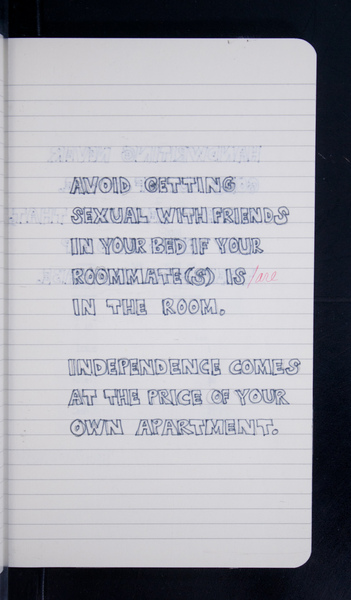 AVOID GETTING
SEXUAL WITH FRIENDS
IN YOUR BED IF YOUR
ROOMMATE(S) IS /are
IN THE ROOM.
INDEPENDENCE COMES
AT THE PRICE OF YOUR
OWN APARTMENT.